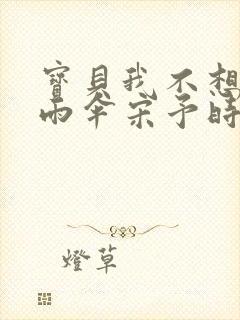 寶貝我不想
雨伞宋予時
燈草